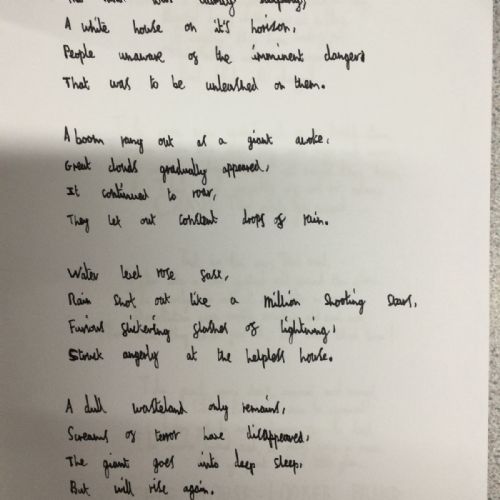 was
A white house on it's horison,
People unaware of the imminent dangers
That was to be unleashed on them.
A boom rang out as a giant awoke,
Great clouds gradually appeared,
It continued to roar,
They let out constant drops of rain.
Water level rose fast,
Rain shot out like a million shooting stars,
Furious flickering slashes of lightning,
Struck angerly at the helpless house.
A dull wasteland only remains,
Screams of terror have disappeared,
The giant goes into deep sleep,
But will rise again.